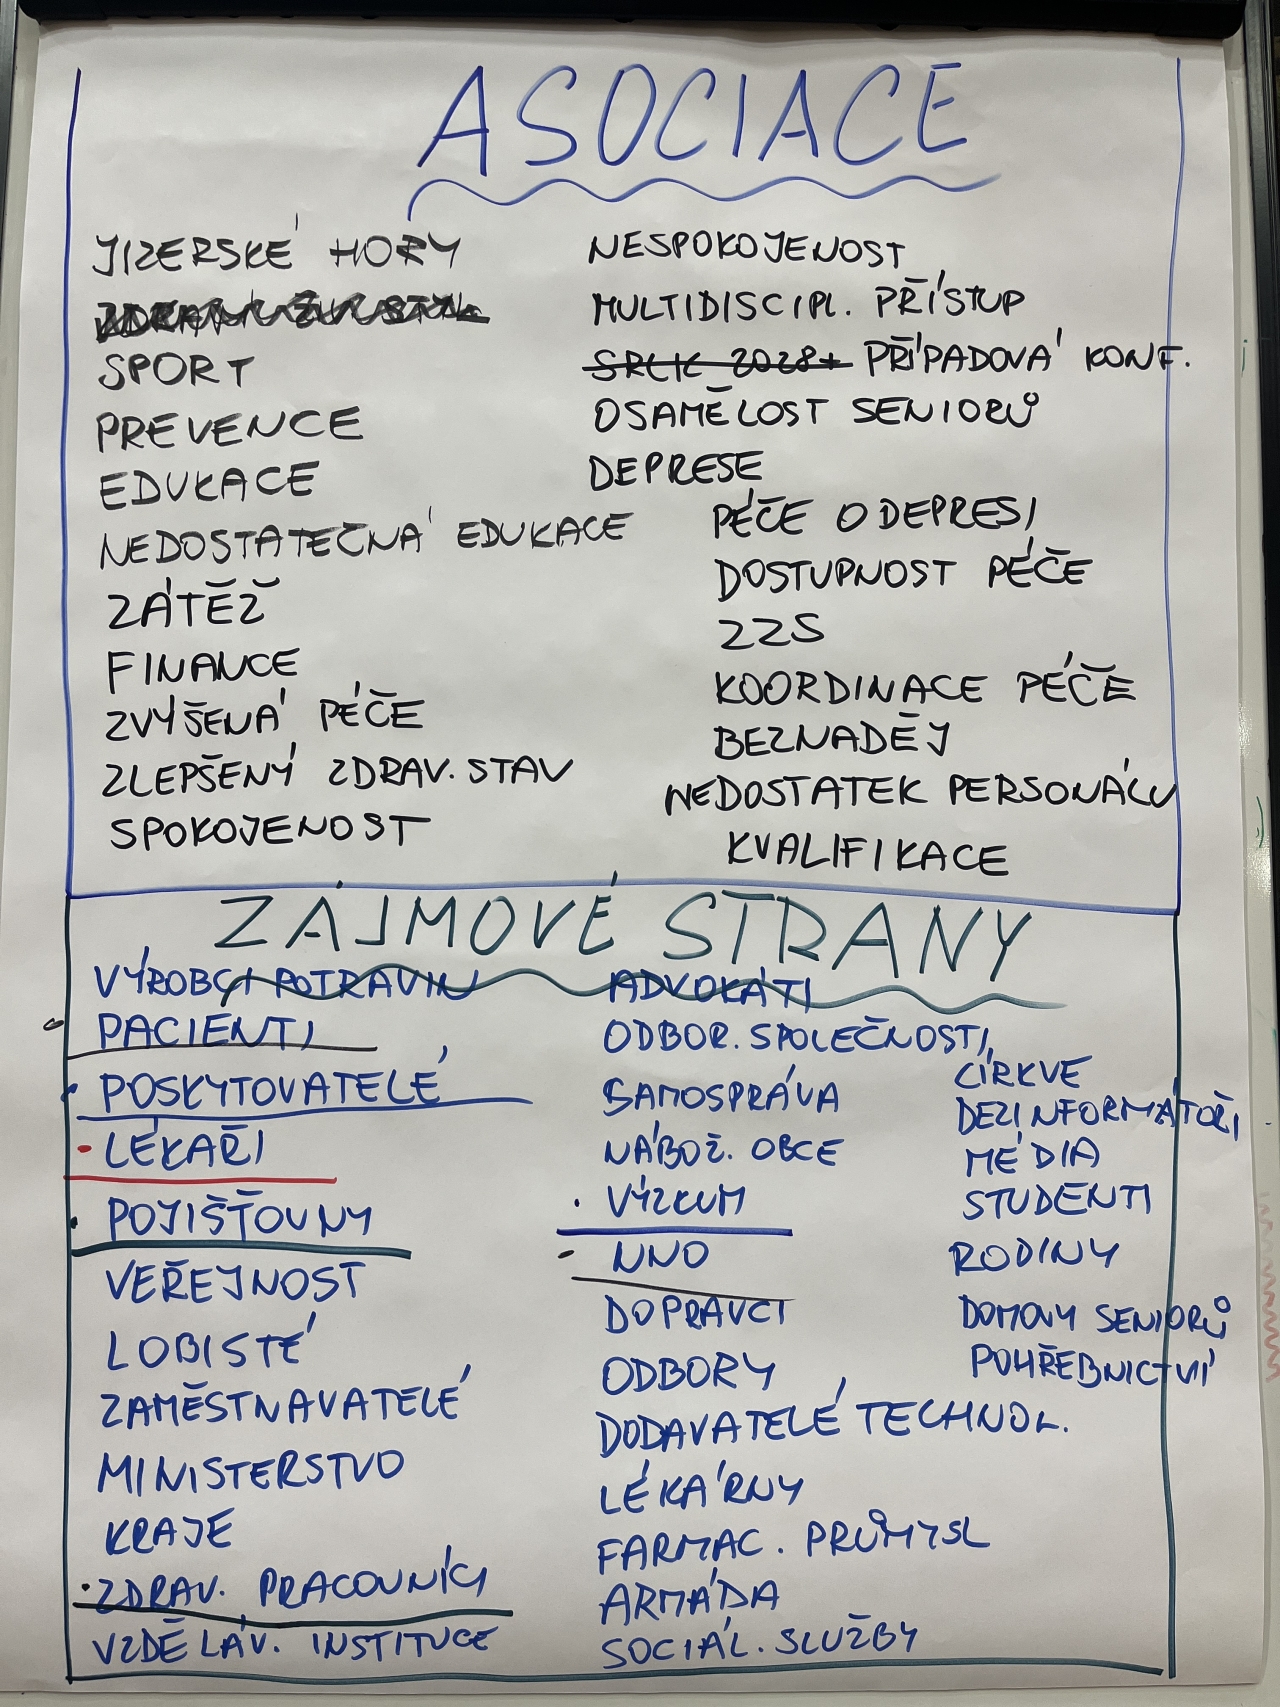 ASOCIACE
JIZERSKÉ HORY
SPORT
PREVENCE
EDUKACE
NEDOSTATEČNÁ EDUKACE
ZÁTĚŽ
FINANCE
ZVÝŠENÁ PÉČE
ZLEPŠENÝ ZDRAV. STAV
SPOKOJENOST
NESPOKOJENOST
MULTIDISCIPL. PŘÍSTUP
PŘÍPADOVÁ KONF.
OSAMĚLOST SENIORŮ
DEPRESE
PÉČE O DEPRESI
DOSTUPNOST PÉČE
ZZS
KOORDINACE PÉČE
BEZNADĚJ
NEDOSTATEK PERSONÁLU
KVALIFIKACE
ZÁJMOVÉ STRANY
VÝROBCI POTRAVIN
PACIENTI
POSKYTOVATELÉ
LÉKAŘI
POJIŠŤOVNY
VEŘEJNOST
LOBISTÉ
ZAMĚSTNAVATELÉ
MINISTERSTVO
KRAJE
ZDRAV. PRACOVNÍCI
VZDĚLÁV. INSTITUCE
ADVOKÁTI
ODBOR. SPOLEČNOSTI
SAMOSPRÁVA
NÁBOŽ. OBCE
VÝZKUM
NNO
DOPRAVCI
ODBORY
DODAVATELÉ TECHNOL.
LÉKÁRNY
FARMAC. PRŮMYSL
ARMÁDA
SOCIÁL. SLUŽBY
CÍRKVE
DEZINFORMÁTOŘI
MÉDIA
STUDENTI
RODINY
DOMOVY SENIORŮ
POHŘEBNICTVÍ